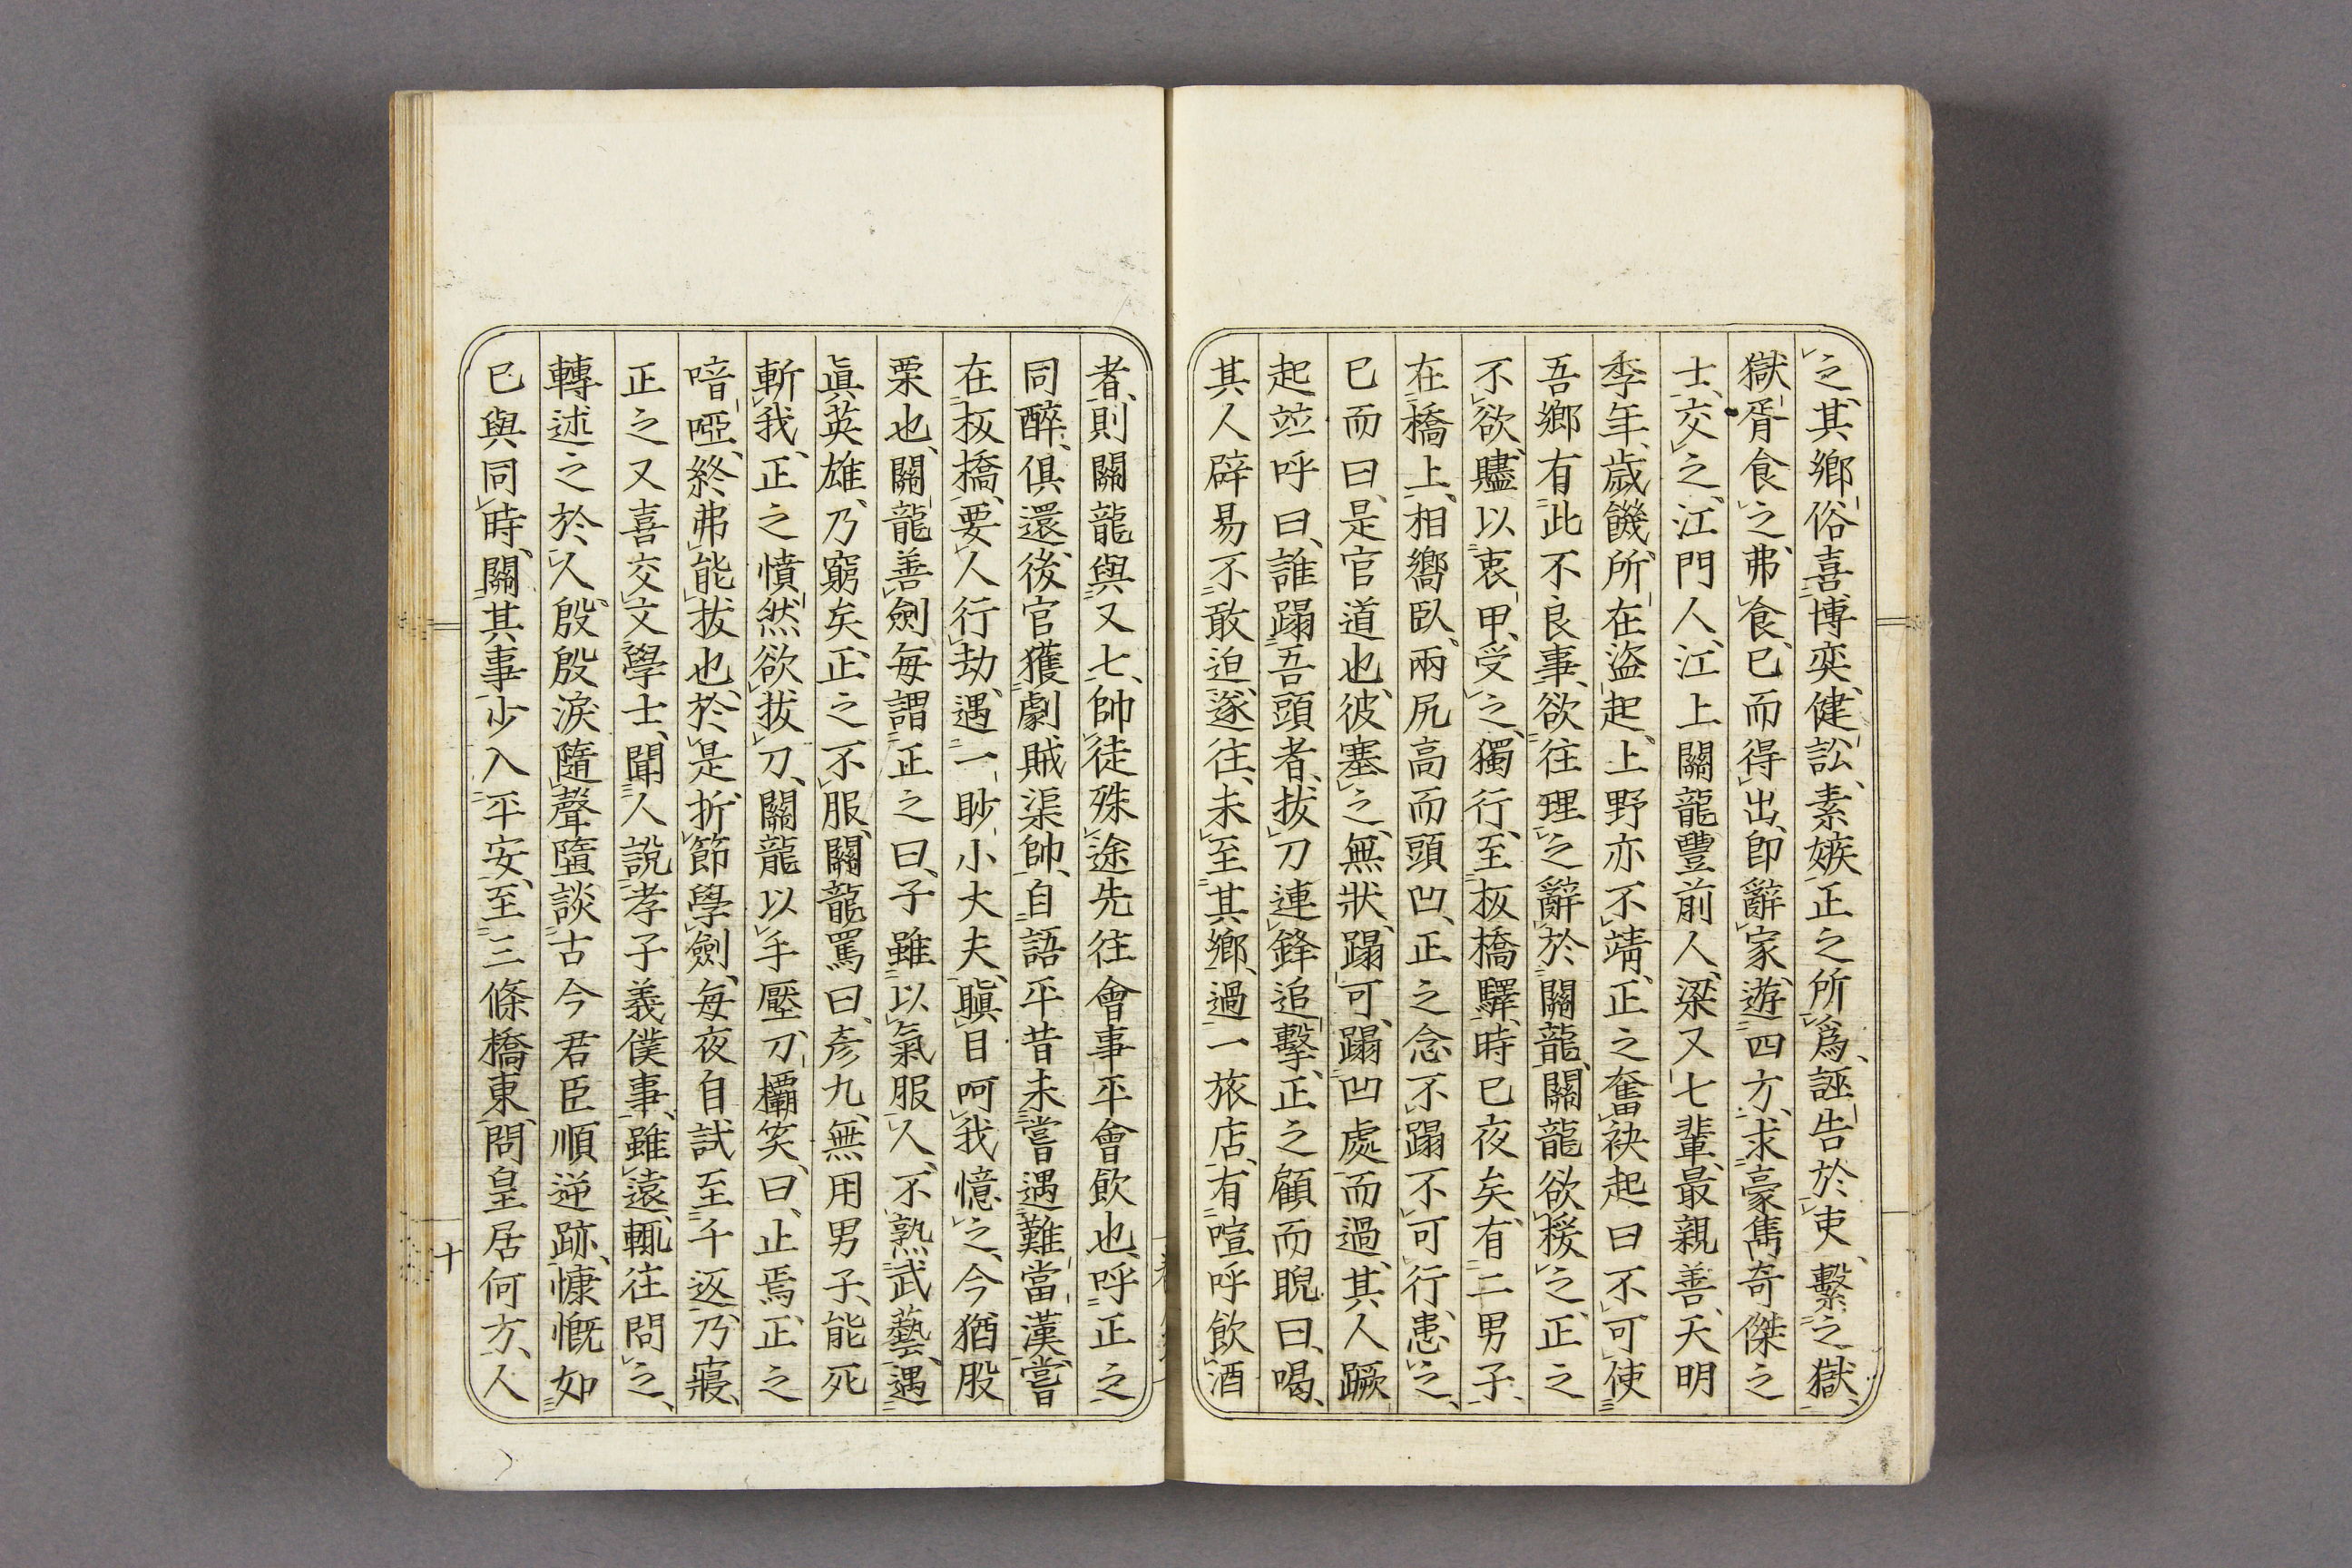 之其鄉俗喜博奕健訟素嫉正之所爲誣告於吏繫之獄
獄胥食之弗食已而得出卽辭家遊四方求豪雋奇傑之
士交之江門人江上關龍豐前人梁又七輩最親善天明
季年歲饑所在盜起上野亦不靖正之奮袂起曰不可使
吾鄉有此不良事欲往理之辭於關龍關龍欲援之正之
不欲贐以衷甲受之獨行至板橋驛時已夜矣有二男子
在橋上相嚮臥兩尻高而頭凹正之念不蹋不可行患之
已而曰是官道也彼塞之無狀蹋可蹋凹處而過其人蹶
起竝呼曰誰蹋吾頭者拔刀連鋒追擊正之顧而睨曰喝
其人辟易不敢迫遂往未至其鄉過一旅店有喧呼飲酒
者則關龍與又七帥徒殊途先往會事平會飲也呼正之
同醉俱還後官獲劇賊渠帥自語平昔未嘗遇難當漢嘗
在板橋要人行劫遇一眇小大夫瞋目呵我憶之今猶股
栗也關龍善劍每謂正之曰子雖以氣服人不熟武藝遇
眞英雄乃窮矣正之不服關龍罵曰彥九無用男子能死
斬我正之憤然欲拔刀關龍以手壓刀欛笑曰止焉正之
喑啞終弗能拔也於是折節學劍每夜自試至千返乃寢
正之又喜交文學士聞人說孝子義僕事雖遠輒往問之
轉述之於人殷殷淚隨聲墮談古今君臣順逆跡慷慨如
已與同時關其事少入平安至三條橋東問皇居何方人
十